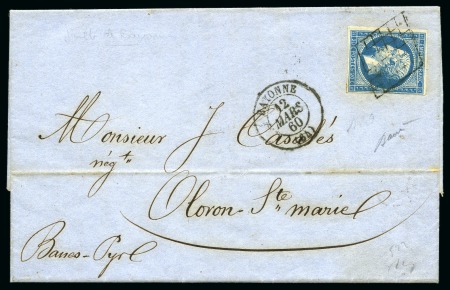 BAYONNE
12
MARS
60
(64)
Monsieur J Cassés
négt
Oloron-Ste Marie
Basses-Pyr.